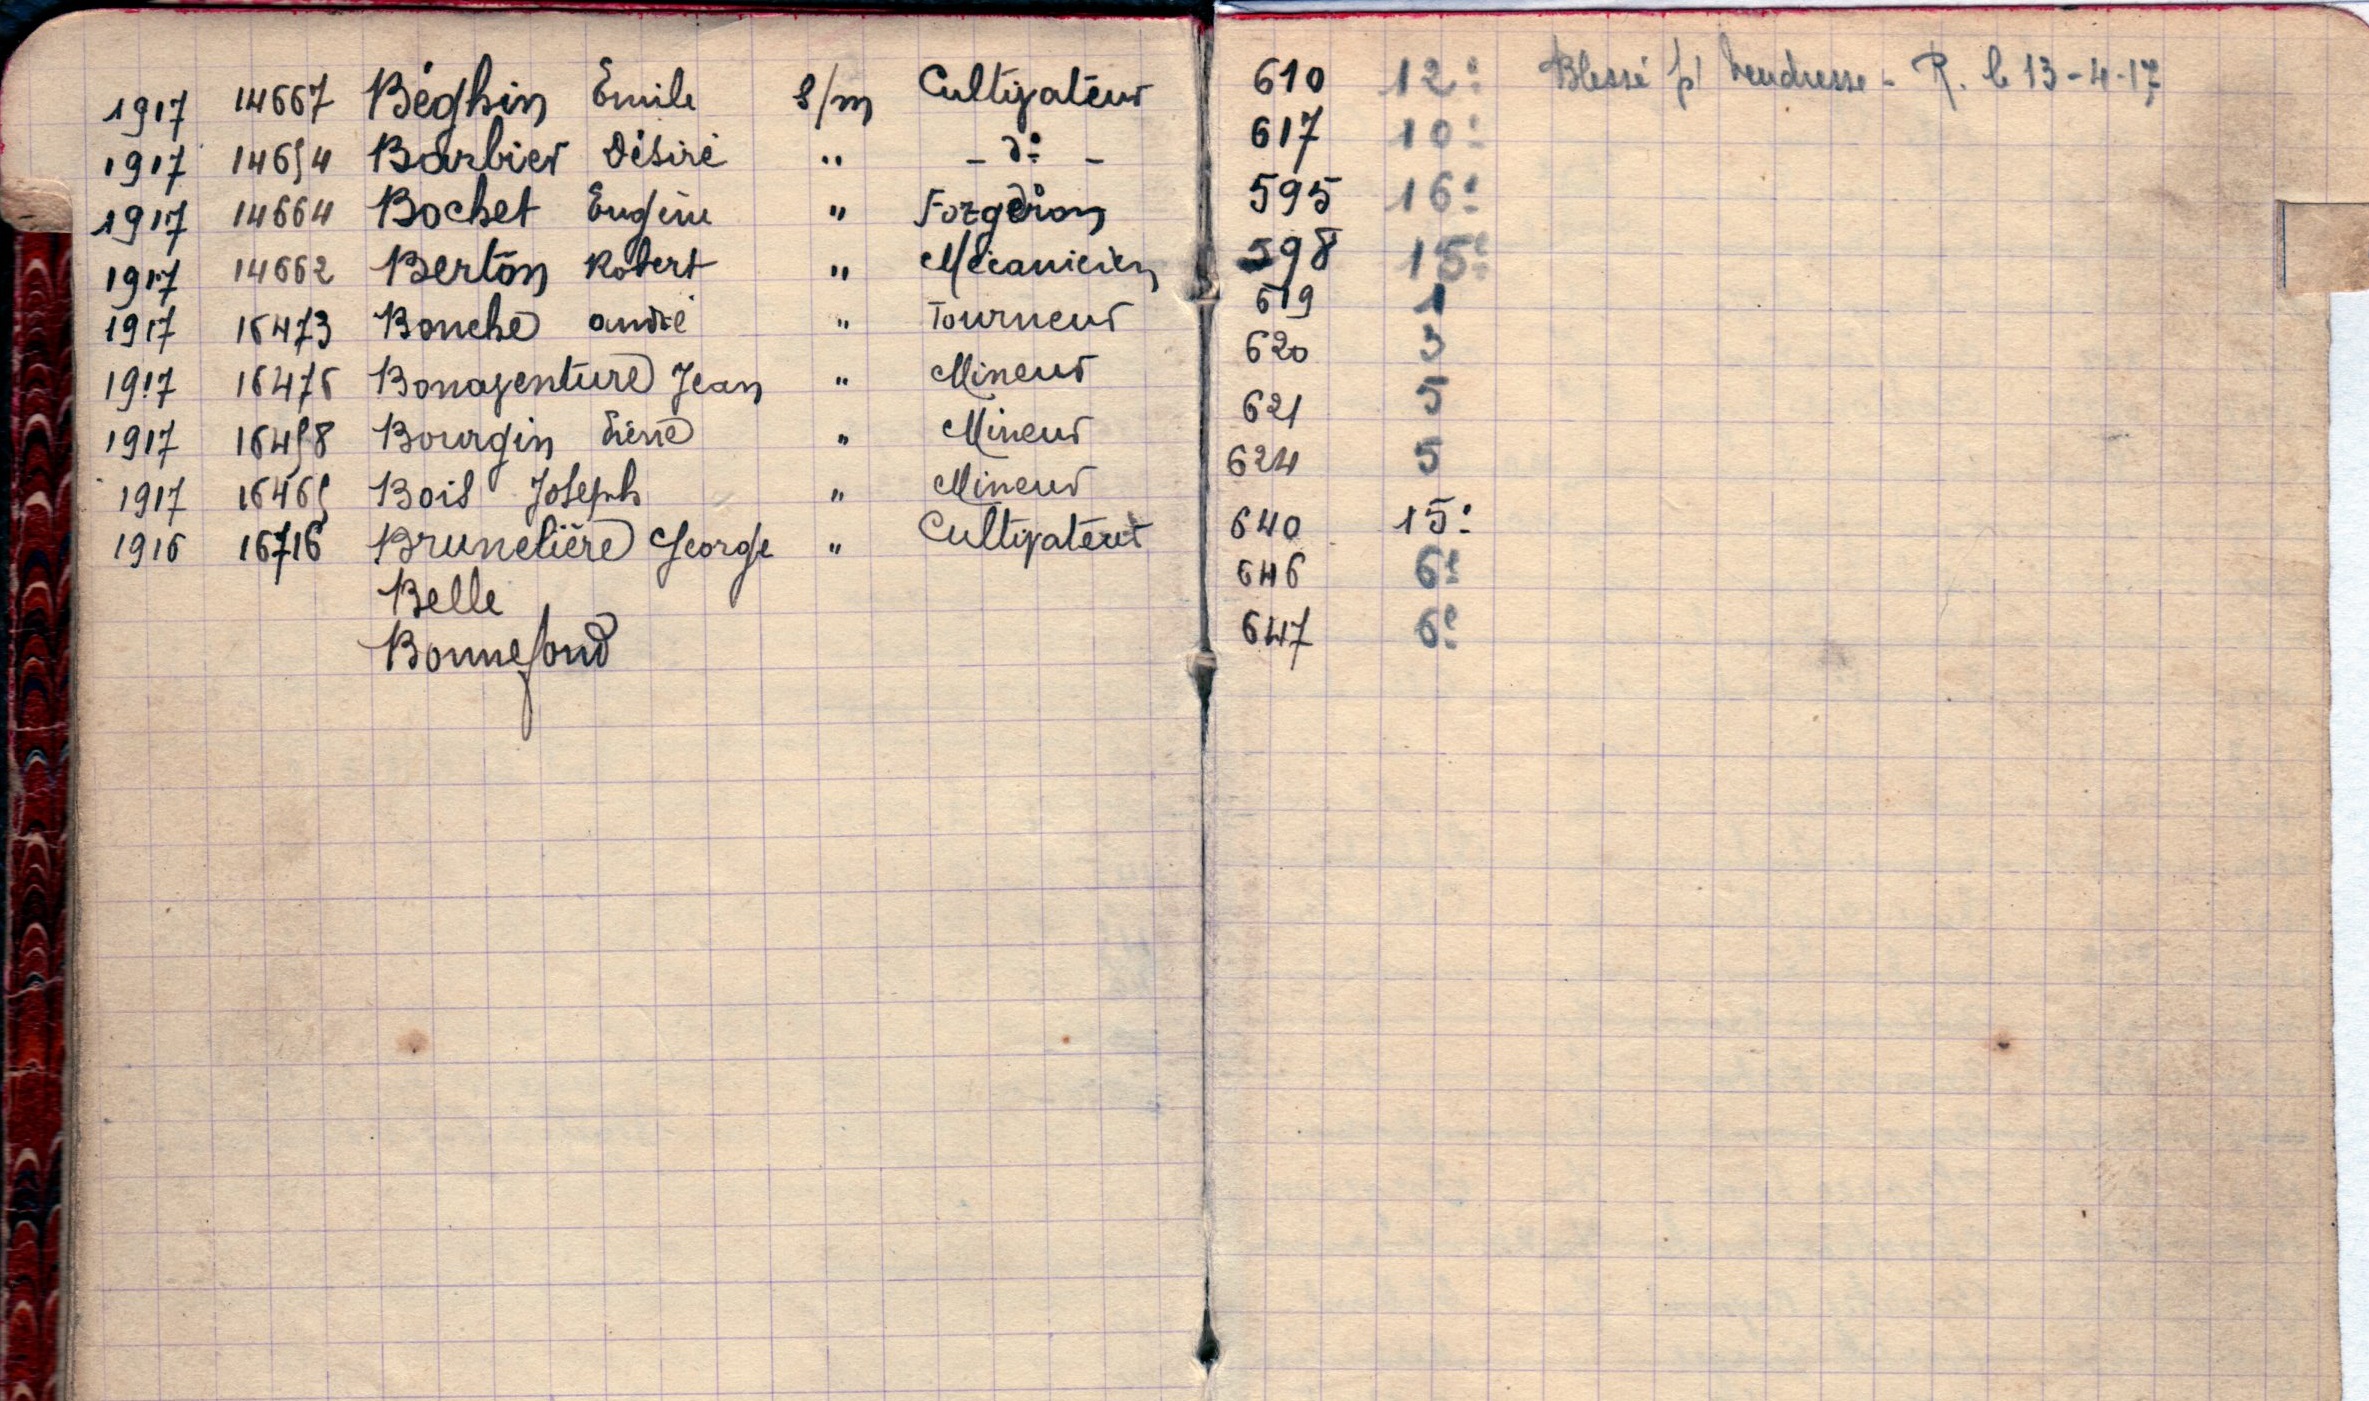 1917 14667 Béghin Emile S/m Cultivateur 610 12e Blessé p! Vendresse - R. le 13-4-17
1917 14654 Barbier Désiré " - do - 617 10e
1917 14664 Bochet Eugène " Forgeron 595 16e
1917 14662 Berton Robert " Mécanicien 598 15e
1917 16473 Bouche André " Tourneur 619 1
1917 16476 Bonaventure Jean " Mineur 620 3
1917 16458 Bourgin Pierre " Mineur 621 5
1917 16465 Bois Joseph " Mineur 624 5
1916 16716 Brunelière George " Cultivateur 640 15e
Belle 646 6e
Bonnefond 647 6e